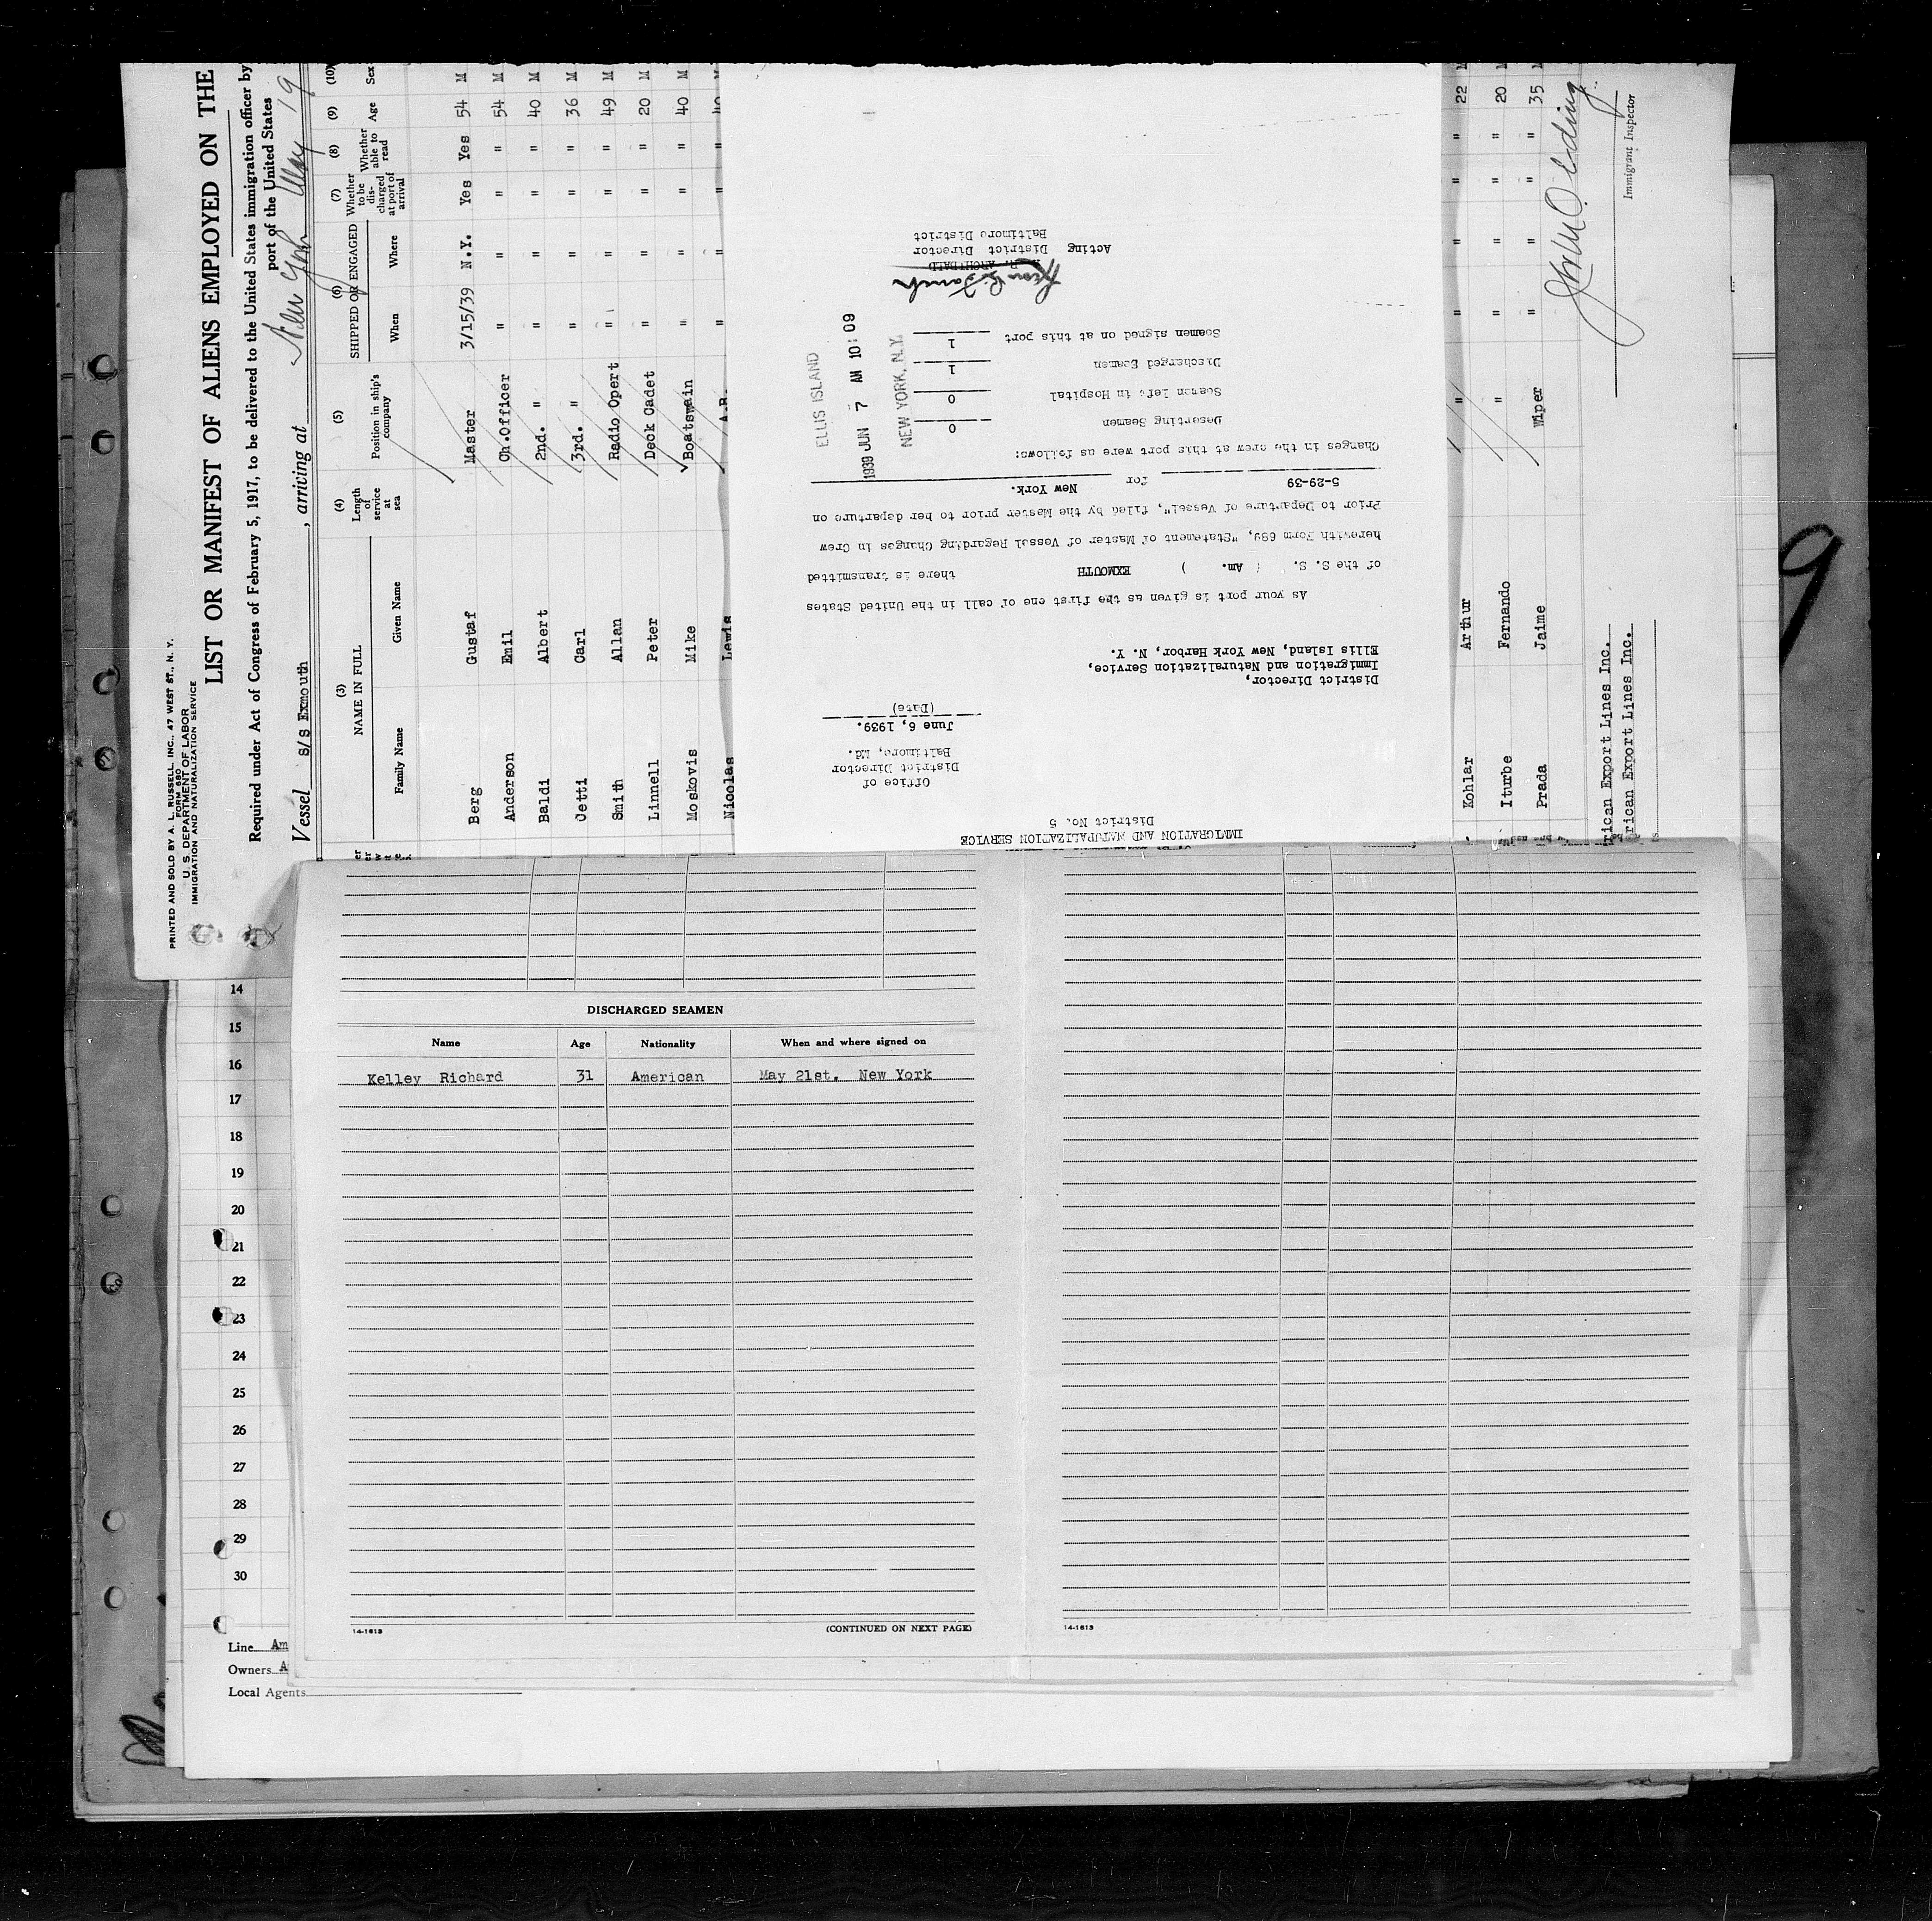 PRINTED AND SOLD BY A. L. RUSSELL, INC., 47 WEST ST., N. Y.
FORM 680
U. S. DEPARTMENT OF LABOR
IMMIGRATION AND NATURALIZATION SERVICE
LIST OR MANIFEST OF ALIENS EMPLOYED ON THE
Required under Act of Congress of February 5, 1917, to be delivered to the United States immigration officer by
port of the United States
Vessel S/S Exmouth, arriving at New York May 19
(3) (4) (5) (6) (7) (8) (9) (10)
NAME IN FULL Length of service at sea Position in ship's company SHIPPED OR ENGAGED Whether to be discharged at port of arrival Whether able to read Age Sex
Family Name Given Name When Where
Berg Gustaf Master 3/15/39 N.Y. Yes Yes 54 M
Anderson Emil Ch.Officer " " " " 54 M
Baldi Albert 2nd. " " " " " 40 M
Cetti Carl 3rd. " " " " " 36 M
Smith Allan Radio Opert " " " " 49 M
Linnell Peter Deck Cadet " " " " 20 M
Moskovis Mike Boatswain " " " " 40 M
Nicolas Lewis A.B. " " " " 40 M
Kohlar Arthur " " " " " 22 M
Iturbe Fernando " " " " " 20 M
Prada Jaime Wiper " " " " 35 M
rican Export Lines Inc.
rican Export Lines Inc.
Immigrant Inspector
IMMIGRATION AND NATURALIZATION SERVICE
District No. 5
Office of
District Director
Baltimore, Md.
June 6, 1939.
(Date)
District Director,
Immigration and Naturalization Service,
Ellis Island, New York Harbor, N. Y.
As your port is given as the first one of call in the United States
of the S. S. ( Am. ) EXMOUTH there is transmitted
herewith Form 689, "Statement of Master of Vessel Regarding Changes in Crew
Prior to Departure of Vessel", filed by the Master prior to her departure on
5-29-39 for New York.
Changes in the crew at this port were as follows:
Deserting Seamen 0
Seamen left in Hospital 0
Discharged Seamen 1
Seamen signed on at this port 1
R. ARCHIBALD
Acting District Director
Baltimore District
ELLIS ISLAND
1939 JUN 7 AM 10:09
NEW YORK, N.Y.
9
DISCHARGED SEAMEN
Name Age Nationality When and where signed on
Kelley Richard 31 American May 21st. New York
14-1613 (CONTINUED ON NEXT PAGE)
14-1613
14
15
16
17
18
19
20
21
22
23
24
25
26
27
28
29
30
Line Am
Owners A
Local Agents